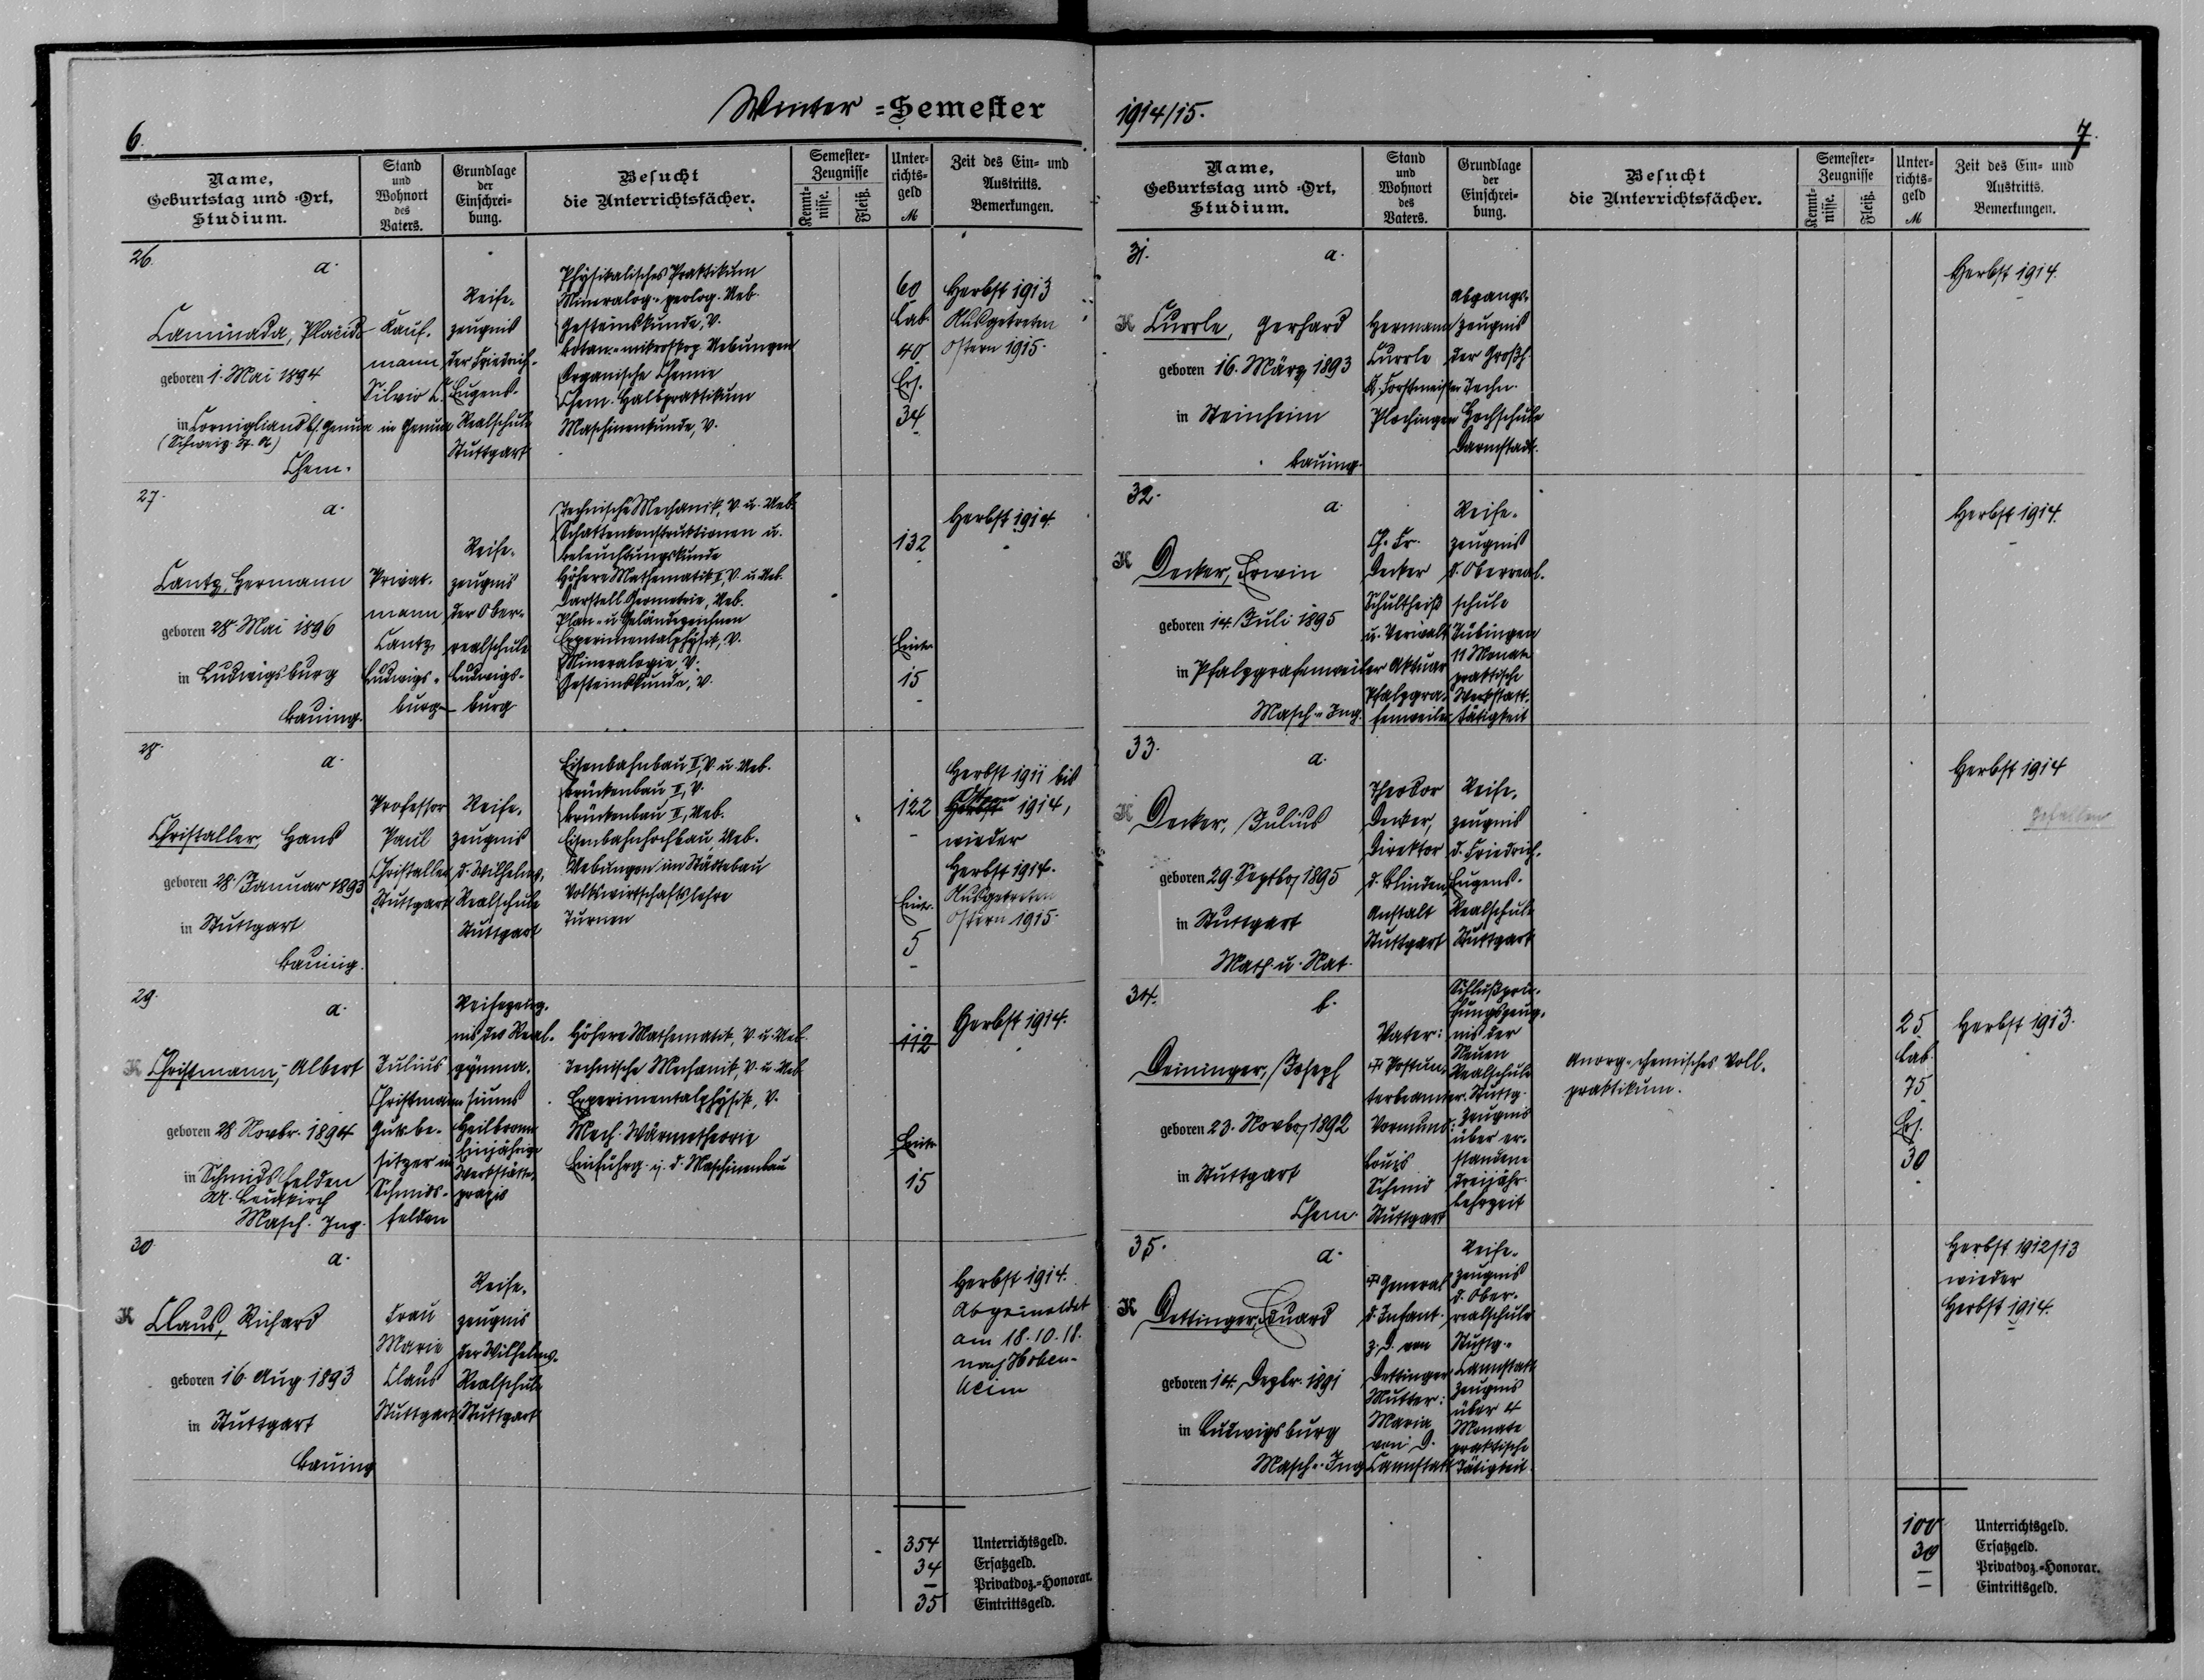 Winter=Semester
1914/15.
6.
7.
Name,
Geburtstag und =Ort,
Studium.
Stand
und
Wohnort
des
Vaters.
Grundlage
der
Einschrei=
bung.
Besucht
die Unterrichtsfächer.
Semester=
Zeugnisse
Kennt=
nisse.
Fleiß.
Unter=
richts=
geld
M
Zeit des Ein= und
Austritts.
Bemerkungen.
26.
a.
Caminada, Placid
geboren 1. Mai 1894
in Cornigliano b/ Genua
(Schweiz. St. A)
Chem.
Kauf-
mann
Silvio C.
in Genua
Reife-
zeugnis
der Friedrich-
Eugens-
Realschule
Stuttgart
Physikalisches Praktikum
Mineralog.-geolog. Ueb.
Gesteinskunde, V.
Botan.-mikroskop. Uebungen
Organische Chemie
Chem. Halbpraktikum
Maschinenkunde, V.
60
Lab.
40
Ers.
34
Herbst 1913
Ausgetreten
Ostern 1915.
27.
a.
Cantz, Hermann
geboren 28. Mai 1896
in Ludwigsburg
Bauing.
Privat-
mann
Cantz
Ludwigs-
burg
Reife-
zeugnis
der Ober-
realschule
Ludwigs-
burg
Technische Mechanik, V. u. Ueb.
Schattenkonstruktionen u.
Beleuchtungskunde
Höhere Mathematik I, V. u. Ueb.
Darstell. Geometrie, Ueb.
Plan- u Geländezeichnen
Experimentalphysik, V.
Mineralogie, V.
Gesteinskunde, V.
132
Eintr.
15
Herbst 1914
28.
a.
Christaller, Hans
geboren 28. Januar 1893
in Stuttgart
Bauing.
Professor
Paul
Christaller
Stuttgart
Reife-
zeugnis
d. Wilhelms-
Realschule
Stuttgart
Eisenbahnbau II, V. u. Ueb.
Brückenbau II, V.
Brückenbau II, Ueb.
Eisenbahnhochbau, Ueb.
Uebungen im Städtebau
Volkswirtschaftslehre
Turnen
122
Eintr.
5
Herbst 1911 bis
Ostern 1914,
wieder
Herbst 1914.
Ausgetreten
Ostern 1915.
29.
a.
K Christmann, Albert
geboren 28 Novbr. 1894
in Schmidsfelden
OA. Leutkirch
Masch. Ing.
Julius
Christmann
Gutsbe-
sitzer in
Schmids-
felden
Reifezeug-
nis des Real-
gymna-
siums
Heilbronn
Einjährige
Werkstätte-
praxis
Höhere Mathematik, V. u. Ueb.
Technische Mechanik, V. u. Ueb
Experimentalphysik, V.
Mech. Wärmetheorie
Einführg. i. d. Maschinenbau
112
Eintr.
15
Herbst 1914.
30.
a.
K Claus, Richard
geboren 16. Aug. 1893
in Stuttgart
Bauing
Frau
Marie
Claus
Stuttgart
Reife-
zeugnis
der Wilhelms-
Realschule
Stuttgart
Herbst 1914.
Abgemeldet
am 18.10.18.
nach Hohen-
heim
354 Unterrichtsgeld.
34 Ersatzgeld.
— Privatdoz.=Honorar.
35 Eintrittsgeld.
Name,
Geburtstag und =Ort,
Studium.
Stand
und
Wohnort
des
Vaters.
Grundlage
der
Einschrei=
bung.
Besucht
die Unterrichtsfächer.
Semester=
Zeugnisse
Kennt=
nisse.
Fleiß.
Unter=
richts=
geld
M
Zeit des Ein= und
Austritts.
Bemerkungen.
31.
a.
K Currle, Gerhard
geboren 16. März 1893
in Steinheim
Bauing.
Hermann
Currle
K. Forstmeister
Plochingen
Abgangs-
zeugnis
der Großh.
Techn.
Hochschule
Darmstadt.
Herbst 1914.
32.
a.
K Decker, Erwin
geboren 14. Juli 1895
in Pfalzgrafenweiler
Masch.-Ing.
Ch. Fr.
Decker
Schultheiß
u. Verwalt.
Aktuar
Pfalzgra-
fenweiler
Reife-
zeugnis
d. Oberreal-
schule
Tübingen
11 Monate
praktische
Werkstatt-
tätigkeit
Herbst 1914.
33.
a.
K Decker, Julius
geboren 29. Septbr 1895
in Stuttgart
Math. u. Nat.
Theodor
Decker,
Direktor
d. Blinden-
Anstalt
Stuttgart
Reife-
zeugnis
d. Friedrich-
Eugens-
Realschule
Stuttgart
Herbst 1914
gefallen
34.
b.
Deininger, Joseph
geboren 23. Novbr 1892
in Stuttgart
Chem.
Vater:
✝ Postun-
terbeamter.
Vormund:
Louis
Schmid
Stuttgart
Schlußprü-
fungszeug-
nis der
Neuen
Realschule
Stuttg.
Zeugnis
über er-
standene
dreijähr.
Lehrzeit
Anorg.-chemisches Voll-
praktikum.
25
Lab.
75
Ers.
30
Herbst 1913.
35.
a.
K Dettinger, Eduard
geboren 14. Dezbr. 1891
in Ludwigsburg
Masch.-Ing.
✝ General
d. Infant.
z. D. von
Dettinger
Mutter:
Maria
von D.
Cannstatt
Reife-
zeugnis
d. Ober-
realschule
Stuttg.-
Cannstatt
Zeugnis
über 4
Monate
praktische
Tätigkeit.
Herbst 1912/13
wieder
Herbst 1914.
100 Unterrichtsgeld.
30 Ersatzgeld.
— Privatdoz.=Honorar.
— Eintrittsgeld.